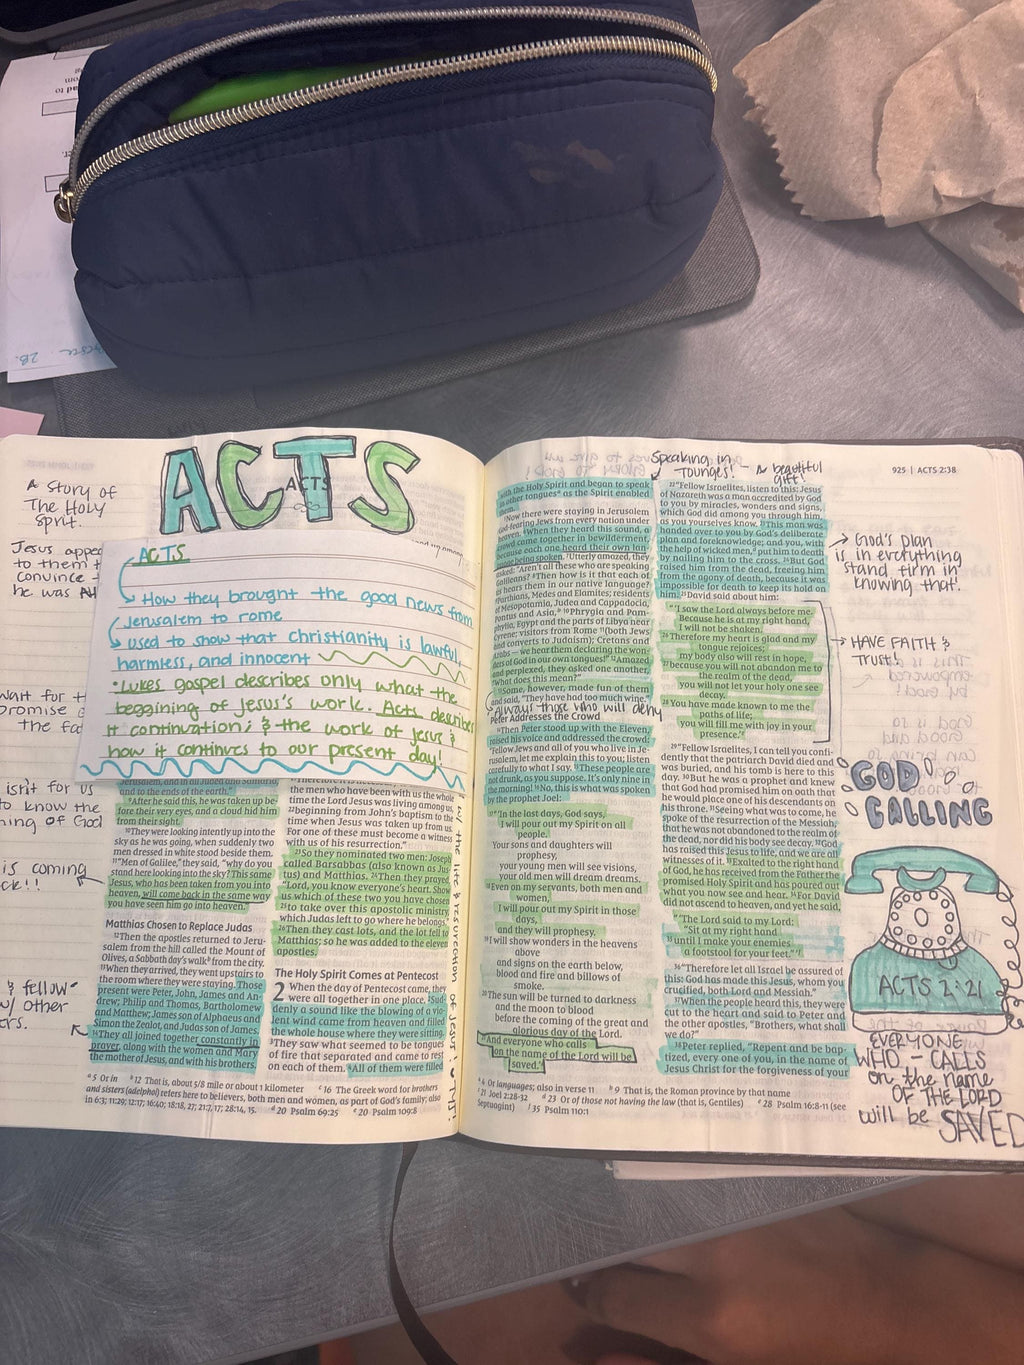 ACTS
ACTS
A story of
The Holy
Spirit.
Jesus
to them
convince
he was
wait for
promise
the
isn't for us
to know the
of God
is coming
& fellow
w/ other
ACTS
How they brought the good news from
Jerusalem to rome
used to show that christianity is lawful,
harmless, and innocent
• Lukes gospel describes only what the
beggining of Jesus's work. Acts describes
it continuation; & the work of Jesus &
how it continues to our present day!
Jerusalem, and in all Judea and Samaria,
and to the ends of the earth."
9After he said this, he was taken up be-
fore their very eyes, and a cloud hid him
from their sight.
10They were looking intently up into the
sky as he was going, when suddenly two
men dressed in white stood beside them.
11"Men of Galilee," they said, "why do you
stand here looking into the sky? This same
Jesus, who has been taken from you into
heaven, will come back in the same way
you have seen him go into heaven."
Matthias Chosen to Replace Judas
12Then the apostles returned to Jeru-
salem from the hill called the Mount of
Olives, a Sabbath day's walkb from the city.
13When they arrived, they went upstairs to
the room where they were staying. Those
present were Peter, John, James and An-
drew; Philip and Thomas, Bartholomew
and Matthew; James son of Alphaeus and
Simon the Zealot, and Judas son of James.
14They all joined together constantly in
prayer, along with the women and Mary
the mother of Jesus, and with his brothers.
the men who have been with us the whole
time the Lord Jesus was living among us,
22beginning from John's baptism to the
time when Jesus was taken up from us.
For one of these must become a witness
with us of his resurrection."
23So they nominated two men: Joseph
called Barsabbas (also known as Jus-
tus) and Matthias. 24Then they prayed,
"Lord, you know everyone's heart. Show
us which of these two you have chosen
25to take over this apostolic ministry,
which Judas left to go where he belongs."
26Then they cast lots, and the lot fell to
Matthias; so he was added to the eleven
apostles.
The Holy Spirit Comes at Pentecost
2 When the day of Pentecost came, they
were all together in one place. 2Sud-
denly a sound like the blowing of a vio-
lent wind came from heaven and filled
the whole house where they were sitting.
3They saw what seemed to be tongues
of fire that separated and came to rest
on each of them. 4All of them were filled
the life & resurrection of Jesus!
a5 Or in b12 That is, about 5/8 mile or about 1 kilometer c16 The Greek word for brothers
and sisters (adelphoi) refers here to believers, both men and women, as part of God's family; also
in 6:3; 11:29; 12:17; 16:40; 18:18, 27; 21:7, 17; 28:14, 15. d20 Psalm 69:25 e20 Psalm 109:8
925 | ACTS 2:38
Speaking in
Tounges! - A beautiful
gift!
with the Holy Spirit and began to speak
in other tonguesa as the Spirit enabled
them.
5Now there were staying in Jerusalem
God-fearing Jews from every nation under
heaven. 6When they heard this sound, a
crowd came together in bewilderment,
because each one heard their own lan-
guage being spoken. 7Utterly amazed, they
asked: "Aren't all these who are speaking
Galileans? 8Then how is it that each of
us hears them in our native language?
9Parthians, Medes and Elamites; residents
of Mesopotamia, Judea and Cappadocia,
Pontus and Asia,b 10Phrygia and Pam-
phylia, Egypt and the parts of Libya near
Cyrene; visitors from Rome 11(both Jews
and converts to Judaism); Cretans and
Arabs—we hear them declaring the won-
ders of God in our own tongues!" 12Amazed
and perplexed, they asked one another,
"What does this mean?"
13Some, however, made fun of them
and said, "They have had too much wine."
Always those who will deny
Peter Addresses the Crowd
14Then Peter stood up with the Eleven,
raised his voice and addressed the crowd:
"Fellow Jews and all of you who live in Je-
rusalem, let me explain this to you; listen
carefully to what I say. 15These people are
not drunk, as you suppose. It's only nine in
the morning! 16No, this is what was spoken
by the prophet Joel:
17"'In the last days, God says,
I will pour out my Spirit on all
people.
Your sons and daughters will
prophesy,
your young men will see visions,
your old men will dream dreams.
18Even on my servants, both men and
women,
I will pour out my Spirit in those
days,
and they will prophesy.
19I will show wonders in the heavens
above
and signs on the earth below,
blood and fire and billows of
smoke.
20The sun will be turned to darkness
and the moon to blood
before the coming of the great and
glorious day of the Lord.
21And everyone who calls
on the name of the Lord will be
saved.'c
22"Fellow Israelites, listen to this: Jesus
of Nazareth was a man accredited by God
to you by miracles, wonders and signs,
which God did among you through him,
as you yourselves know. 23This man was
handed over to you by God's deliberate
plan and foreknowledge; and you, with
the help of wicked men,d put him to death
by nailing him to the cross. 24But God
raised him from the dead, freeing him
from the agony of death, because it was
impossible for death to keep its hold on
him. 25David said about him:
"'I saw the Lord always before me.
Because he is at my right hand,
I will not be shaken.
26Therefore my heart is glad and my
tongue rejoices;
my body also will rest in hope,
27because you will not abandon me to
the realm of the dead,
you will not let your holy one see
decay.
28You have made known to me the
paths of life;
you will fill me with joy in your
presence.'e
29"Fellow Israelites, I can tell you confi-
dently that the patriarch David died and
was buried, and his tomb is here to this
day. 30But he was a prophet and knew
that God had promised him on oath that
he would place one of his descendants on
his throne. 31Seeing what was to come, he
spoke of the resurrection of the Messiah,
that he was not abandoned to the realm of
the dead, nor did his body see decay. 32God
has raised this Jesus to life, and we are all
witnesses of it. 33Exalted to the right hand
of God, he has received from the Father the
promised Holy Spirit and has poured out
what you now see and hear. 34For David
did not ascend to heaven, and yet he said,
"'The Lord said to my Lord:
"Sit at my right hand
35until I make your enemies
a footstool for your feet."'f
36"Therefore let all Israel be assured of
this: God has made this Jesus, whom you
crucified, both Lord and Messiah."
37When the people heard this, they were
cut to the heart and said to Peter and
the other apostles, "Brothers, what shall
we do?"
38Peter replied, "Repent and be bap-
tized, every one of you, in the name of
Jesus Christ for the forgiveness of your
God's plan
is in everything
stand firm in
knowing that!
HAVE FAITH &
TRUST!
GOD
CALLING
ACTS 2:21
EVERYONE
WHO - CALLS
on the name
OF THE LORD
will be SAVED
a4 Or languages; also in verse 11 b9 That is, the Roman province by that name
c21 Joel 2:28-32 d23 Or of those not having the law (that is, Gentiles) e28 Psalm 16:8-11 (see
Septuagint) f35 Psalm 110:1